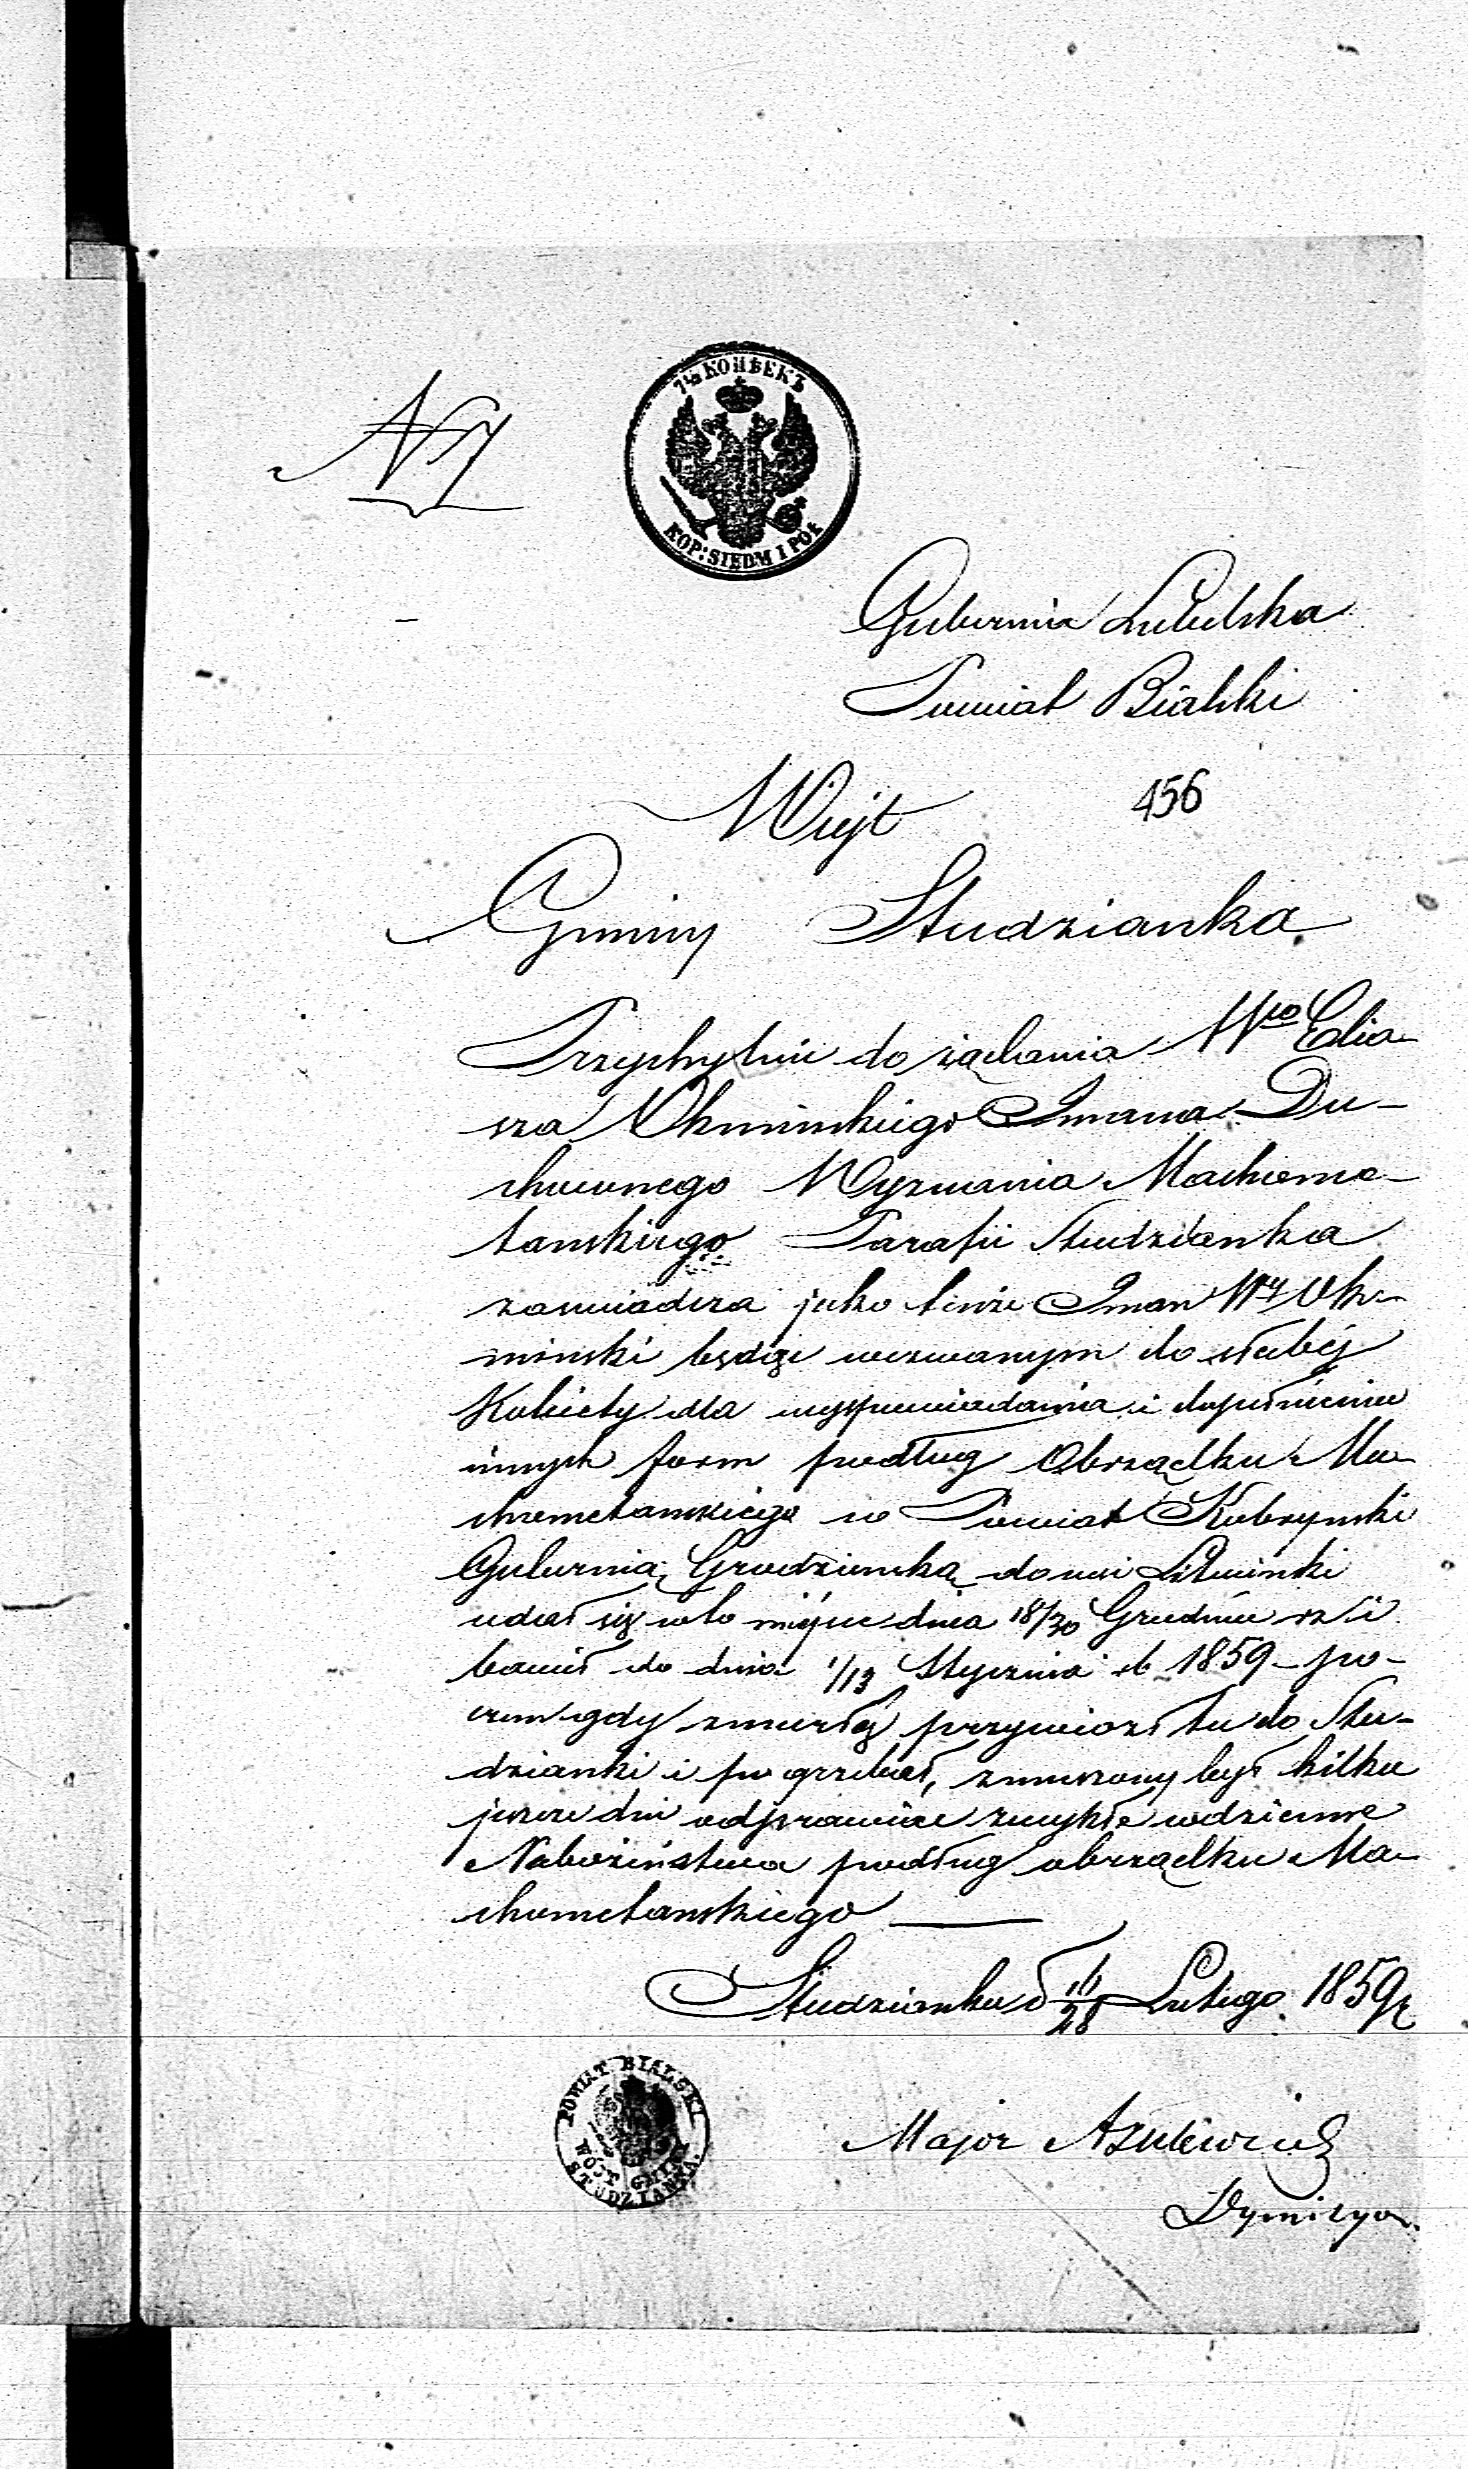 N 7
7½ КОПѢЕКЪ
KOP: SIEDM I PÓŁ
Gubernia Lubelska
Powiat Bialski
Wójt
456
Gminy Studzianka
Przychylnie do żądania Wgo Elia-
sza Okminskiego Imama Du-
chownego Wyznania Machome-
tanskiego Parafii Studzianka
zaswiadcza jako tenże Imam Wy Ok-
minski będąc wezwanym do słabéj
Kobiety dla wyspowiadania i dopełnienia
innych form podług Obrządku Ma-
chometanskiego w Powiat Kobrynski
Gubernią Grodzienską do wsi Litwinki
udał się w to miejsce dnia 18/30 Grudnia r z i
bawił do dnia 1/13 Stycznia rb 1859 - po-
czem gdy zmarłą przywiozł tu do Stu-
dzianki i pogrzebał, zmuszony był kilka
jeszcze dni odprawiać zwykłe codzienne
Nabożeństwa podług obrządku Ma-
chometanskiego
Studzianka d 16/28 Lutego 1859 r
POWIAT BIALSKI
WÓJT GMINY
STUDZIANKA.
Major Azulewicz
Dymisyo.